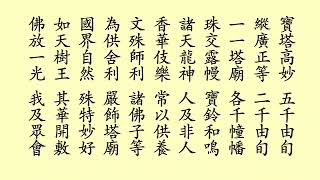 寶塔高妙 五千由旬
縱廣正等 二千由旬
一一塔廟 各千幢幡
珠交露幔 寶鈴和鳴
諸天龍神 人及非人
香華伎樂 常以供養
文殊師利 諸佛子等
為供舍利 嚴飾塔廟
國界自然 殊特妙好
如天樹王 其華開敷
佛放一光 我及眾會